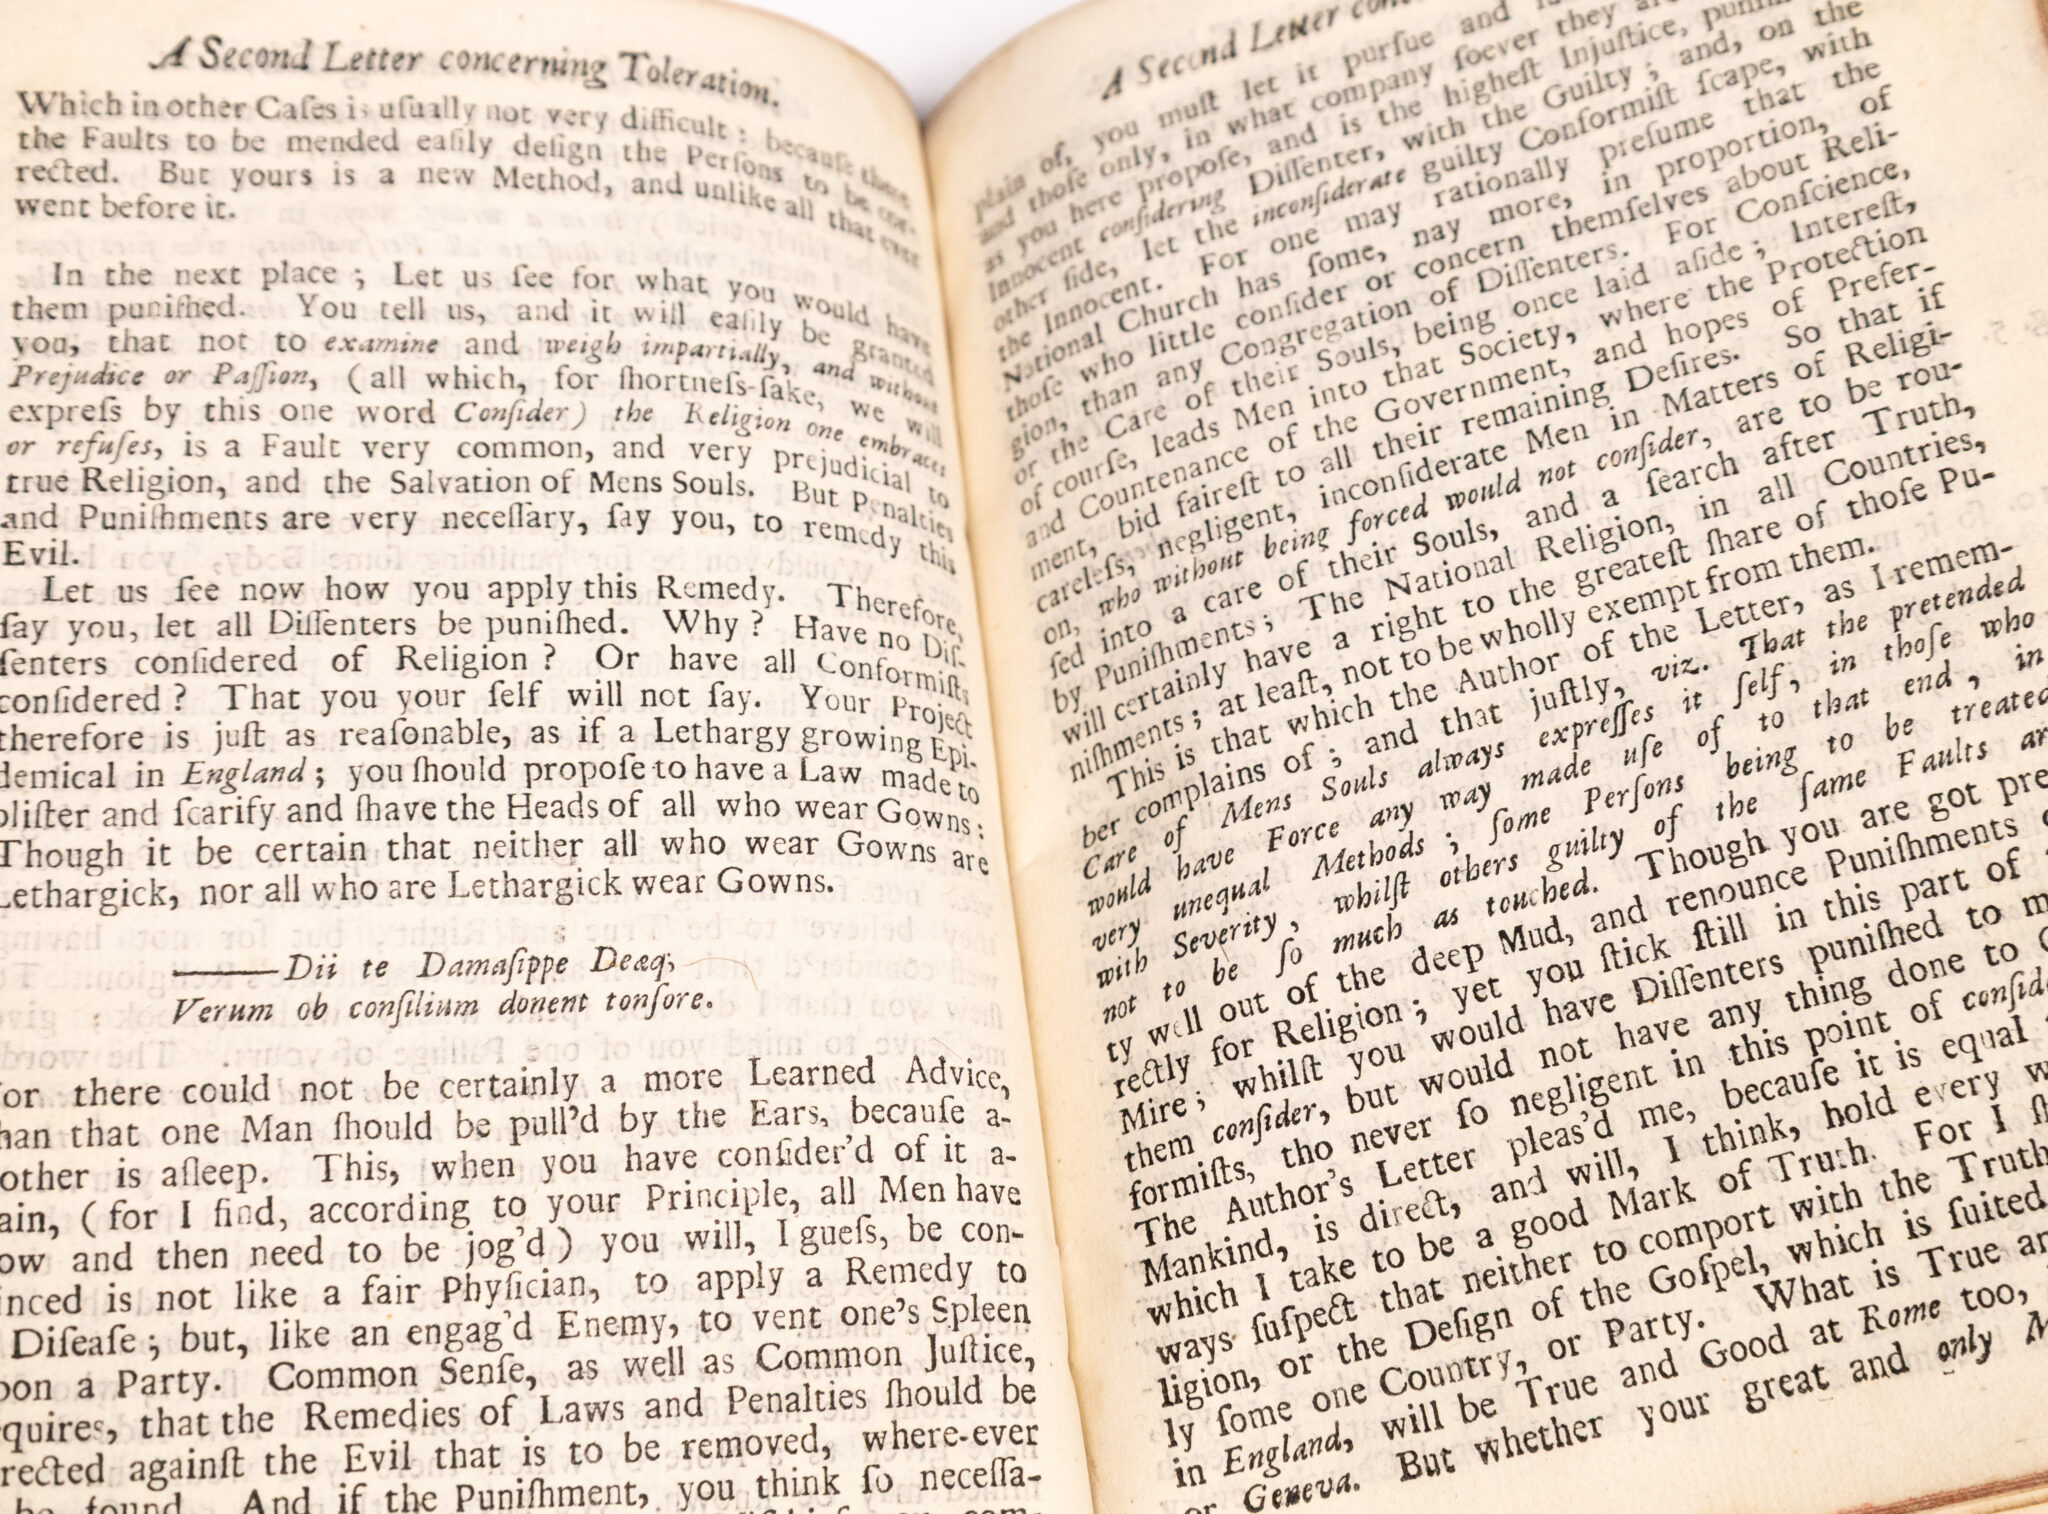 A Second Letter concerning Toleration.
Which in other Caſes is uſually not very difficult: becauſe there
the Faults to be mended eaſily deſign the Perſons to be cor-
rected. But yours is a new Method, and unlike all that ever
went before it.
In the next place; Let us ſee for what you would have
them puniſhed. You tell us, and it will eaſily be granted
you, that not to examine and weigh impartially, and without
Prejudice or Paſſion, (all which, for ſhortneſs-ſake, we will
expreſs by this one word Conſider) the Religion one embraces
or refuſes, is a Fault very common, and very prejudicial to
true Religion, and the Salvation of Mens Souls. But Penalties
and Puniſhments are very neceſſary, ſay you, to remedy this
Evil.
Let us ſee now how you apply this Remedy. Therefore,
ſay you, let all Diſſenters be puniſhed. Why? Have no Diſ-
ſenters conſidered of Religion? Or have all Conformiſts
conſidered? That you your ſelf will not ſay. Your Project
therefore is juſt as reaſonable, as if a Lethargy growing Epi-
demical in England; you ſhould propoſe to have a Law made to
bliſter and ſcarify and ſhave the Heads of all who wear Gowns:
Though it be certain that neither all who wear Gowns are
Lethargick, nor all who are Lethargick wear Gowns.
——Dii te Damaſippe Deæq;
Verum ob conſilium donent tonſore.
for there could not be certainly a more Learned Advice,
than that one Man ſhould be pull'd by the Ears, becauſe a-
nother is aſleep. This, when you have conſider'd of it a-
gain, (for I find, according to your Principle, all Men have
now and then need to be jog'd) you will, I gueſs, be con-
vinced is not like a fair Phyſician, to apply a Remedy to
Diſeaſe; but, like an engag'd Enemy, to vent one's Spleen
upon a Party. Common Senſe, as well as Common Juſtice,
requires, that the Remedies of Laws and Penalties ſhould be
directed againſt the Evil that is to be removed, where-ever
be found. And if the Puniſhment, you think ſo neceſſa-
com-
A Second Letter
plain of, you muſt let it purſue and
and thoſe only, in what company ſoever they are
as you here propoſe, and is the higheſt Injuſtice,
Innocent conſidering Diſſenter, with the Guilty; and, on the
other ſide, let the inconſiderate guilty Conformiſt ſcape, with
the Innocent. For one may rationally preſume that the
National Church has ſome, nay more, in proportion, of
thoſe who little conſider or concern themſelves about Reli-
gion, than any Congregation of Diſſenters. For Conſcience,
or the Care of their Souls, being once laid aſide; Intereſt,
of courſe, leads Men into that Society, where the Protection
and Countenance of the Government, and hopes of Prefer-
ment, bid faireſt to all their remaining Deſires. So that if
careleſs, negligent, inconſiderate Men in Matters of Religi-
on, who without being forced would not conſider, are to be rou-
ſed into a care of their Souls, and a ſearch after Truth,
by Puniſhments; The National Religion, in all Countries,
will certainly have a right to the greateſt ſhare of thoſe Pu-
niſhments; at leaſt, not to be wholly exempt from them.
This is that which the Author of the Letter, as I remem-
ber complains of; and that juſtly, viz. That the pretended
Care of Mens Souls always expreſſes it ſelf, in thoſe who
would have Force any way made uſe of to that end, in
very unequal Methods; ſome Perſons being to be treated
with Severity, whilſt others guilty of the ſame Faults are
not to be ſo much as touched. Though you are got pret-
ty well out of the deep Mud, and renounce Puniſhments
rectly for Religion; yet you ſtick ſtill in this part of
Mire; whilſt you would have Diſſenters puniſhed to m
them conſider, but would not have any thing done to C
formiſts, tho never ſo negligent in this point of conſid
The Author's Letter pleas'd me, becauſe it is equal
Mankind, is direct, and will, I think, hold every w
which I take to be a good Mark of Truth. For I ſh
ways ſuſpect that neither to comport with the Truth
ligion, or the Deſign of the Goſpel, which is ſuited
ly ſome one Country, or Party. What is True an
in England, will be True and Good at Rome too,
or Geneva. But whether your great and only M